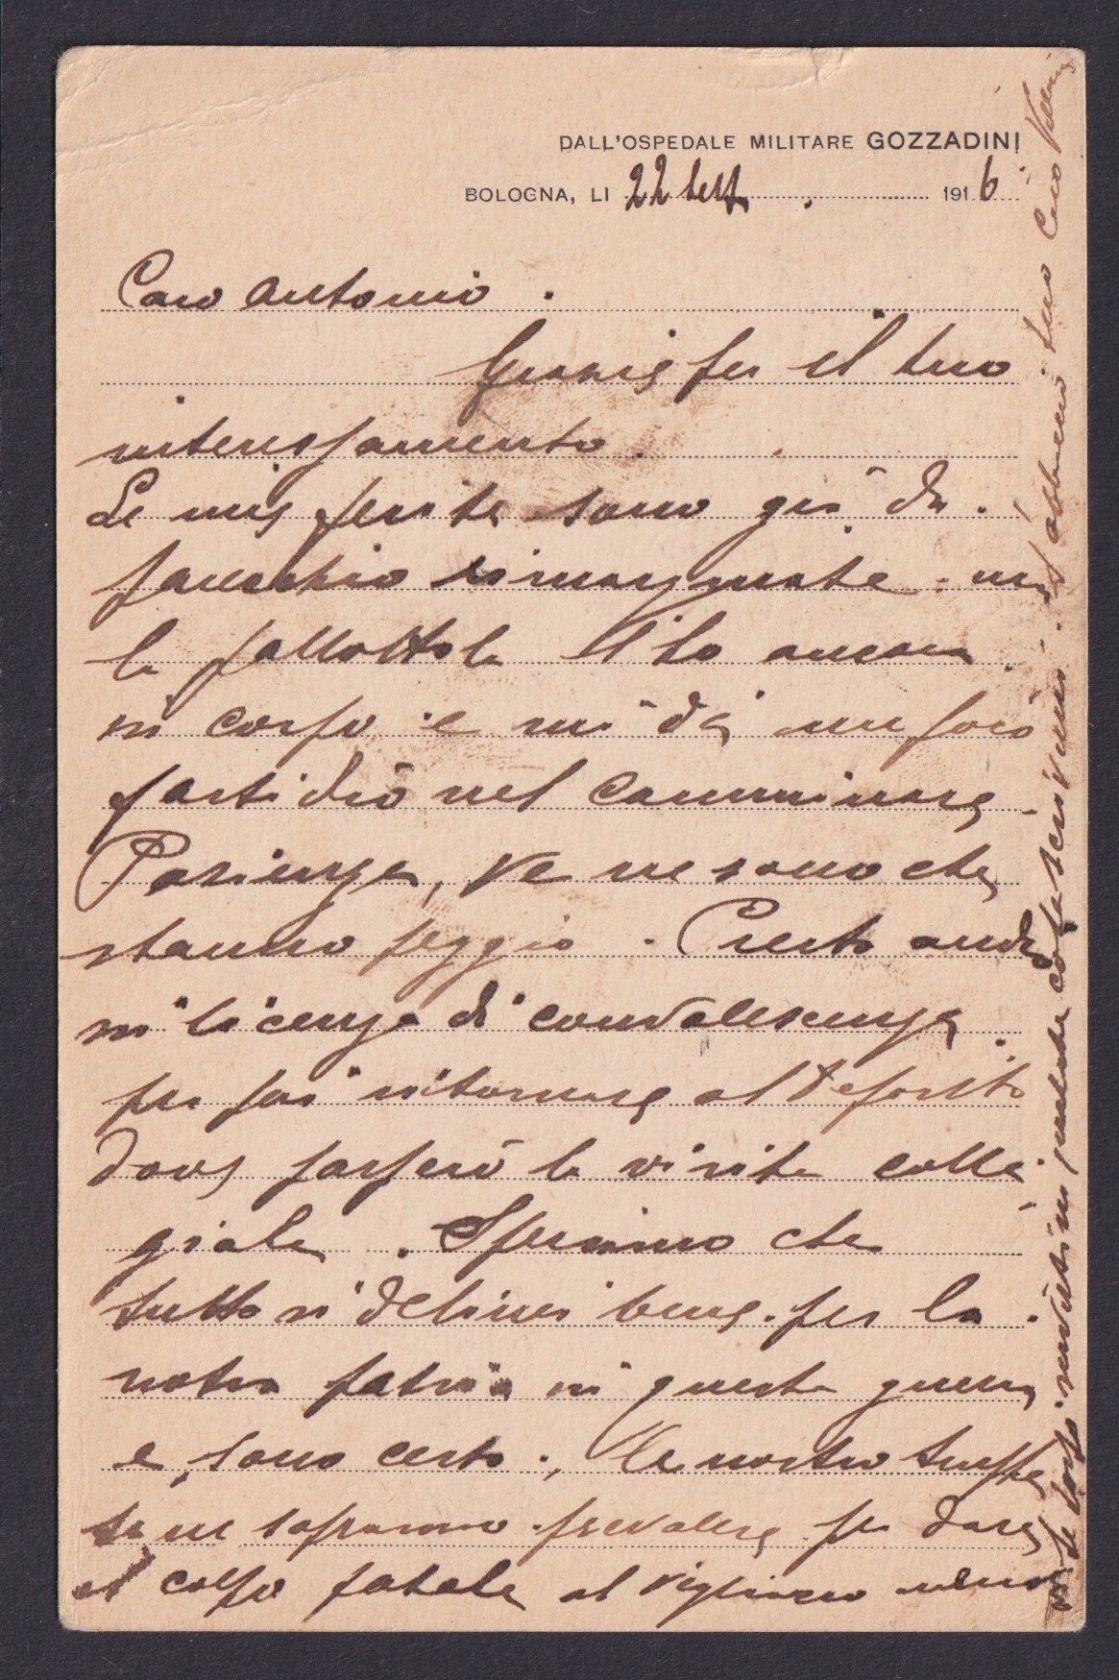 DALL'OSPEDALE MILITARE GOZZADINI
BOLOGNA, LI 22 Sett. 1916
Caro Antonio.
Grazie per il tuo
interessamento.
Le mie ferite sono già da
parecchio rimarginate. ma
la pallottola l'ho ancora
in corpo e mi dà un poco
fastidio nel camminare.
Pazienza, ve ne sono che
stanno peggio. Presto andrò
in licenza di convalescenza
per poi ritornare al deposito
dove passerò la visita colle
giale. Speriamo che
tutto si delinei bene per la
nostra patria in questa guerra
e, sono certo, le nostre truppe
se ne sapranno prevalere per dare
il colpo fatale al vigliacco nemico
Se scrivimi. abbracci tuo Caro